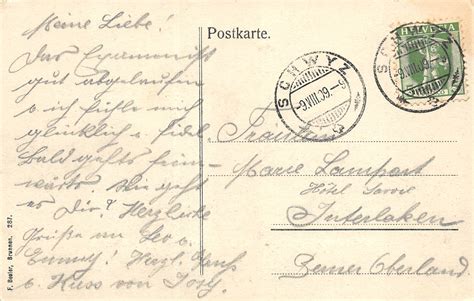 Meine Liebe!
Das Examen ist
gut abgelaufen
u ich fühle mich
glücklich u. fidel
Bald gehts heim-
wärts. Wie geht
es Dir? Herzliche
Grüße an Leo u.
Emmy! Herzl. Gruss
u Kuss von
Postkarte.
HELVETIA
SCHWYZ
-9.VIII.09.-6
SCHWYZ
-9.VIII.09.-6
Fräulein
Marie Lampart
Hôtel Savoie
Interlaken
Berner Oberland
F. Bosler, Brunnen. 287.